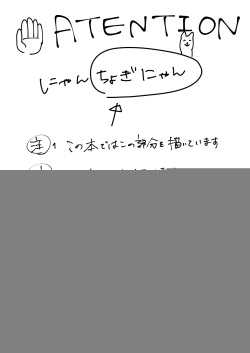 ATENTION
にゃんちょぎにゃん
注1 この本ではこの部分を描いています